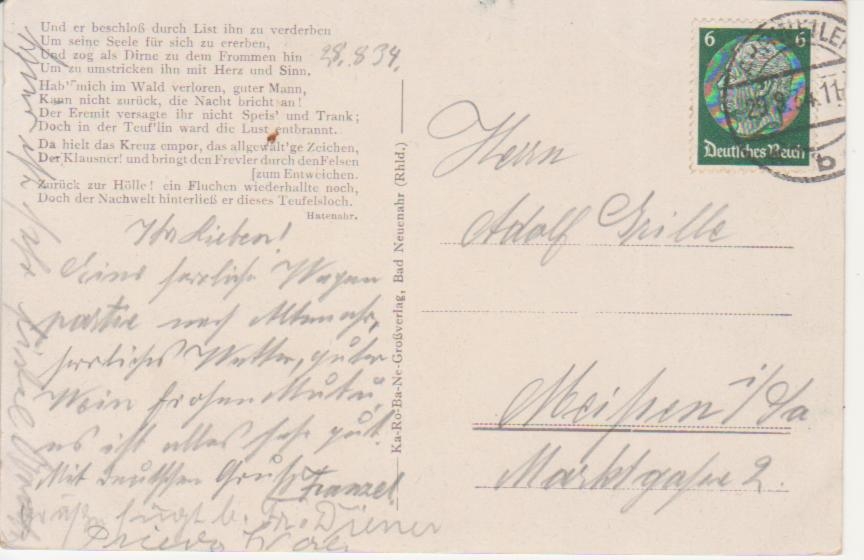 Und er beschloß durch List ihn zu verderben
Um seine Seele für sich zu ererben,
Und zog als Dirne zu dem Frommen hin
Um zu umstricken ihn mit Herz und Sinn.
28.8.34.
Hab' mich im Wald verloren, guter Mann,
Kann nicht zurück, die Nacht bricht an!
Der Eremit versagte ihr nicht Speis' und Trank;
Doch in der Teuf'lin ward die Lust entbrannt.
Da hielt das Kreuz empor, das allgewält'ge Zeichen,
Der Klausner! und bringt den Frevler durch den Felsen
[zum Entweichen.
Zurück zur Hölle! ein Fluchen wiederhallte noch,
Doch der Nachwelt hinterließ er dieses Teufelsloch.
Hatenahr.
Ihr Lieben!
Eine herrliche Wagen
partie nach Altenahr,
herrliches Wetter, guter
Wein frohen Mutes
es ist alles sehr gut.
Mit Deutschen Gruß Franzel
Diener
Ka-Ro-Ba-Ne-Großverlag, Bad Neuenahr (Rhld.)
6 6
Deutsches Reich
b
Herrn
Adolf Grille
Meißen i/Sa
Marktgasse 2.